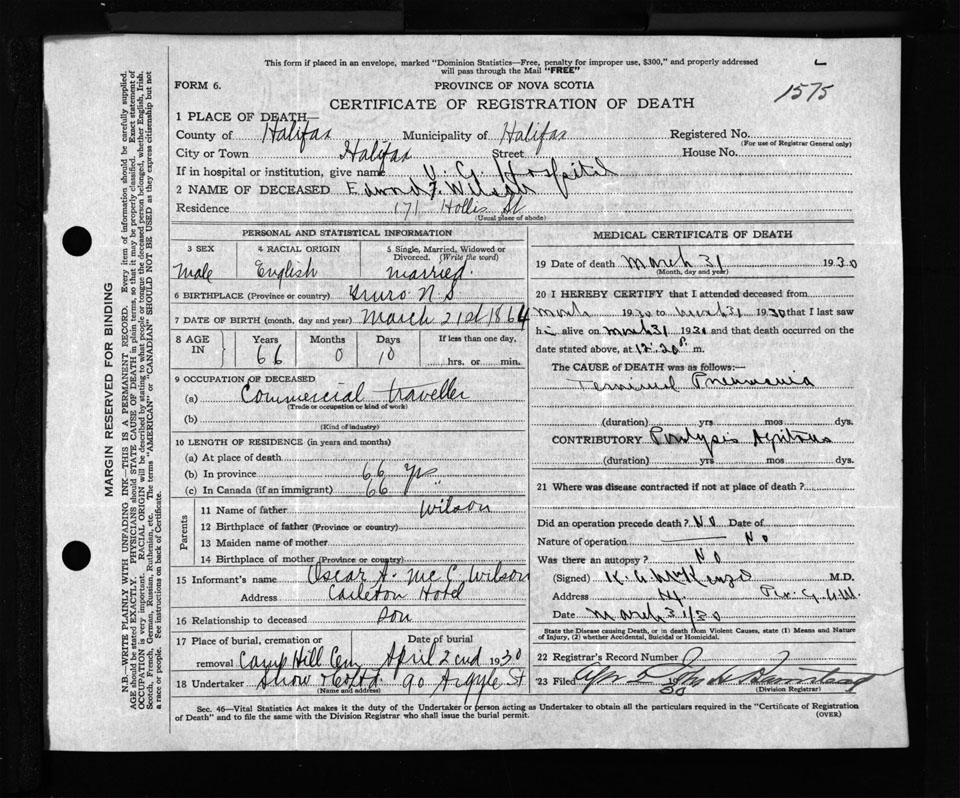 This form if placed in an envelope, marked "Dominion Statistics—Free, penalty for improper use, $300," and properly addressed
will pass through the Mail "FREE"
FORM 6.
PROVINCE OF NOVA SCOTIA
1575
CERTIFICATE OF REGISTRATION OF DEATH
1 PLACE OF DEATH—
County of Halifax Municipality of Halifax Registered No.
(For use of Registrar General only)
City or Town Halifax Street House No.
If in hospital or institution, give name V. G. Hospital
2 NAME OF DECEASED Edmund F. Wilson
Residence 171 Hollis St
(Usual place of abode)
PERSONAL AND STATISTICAL INFORMATION
3 SEX 4 RACIAL ORIGIN 5 Single, Married, Widowed or
Divorced. (Write the word)
Male English married.
6 BIRTHPLACE (Province or country) Truro N.S
7 DATE OF BIRTH (month, day and year) March 21st 1864
8 AGE IN Years Months Days If less than one day,
66 0 10 hrs. or min.
9 OCCUPATION OF DECEASED
(a) Commercial traveller
(Trade or occupation or kind of work)
(b)
(Kind of industry)
10 LENGTH OF RESIDENCE (in years and months)
(a) At place of death
(b) In province 66 yrs
(c) In Canada (if an immigrant) 66 "
Parents
11 Name of father Wilson
12 Birthplace of father (Province or country)
13 Maiden name of mother
14 Birthplace of mother (Province or country)
15 Informant's name Oscar A. McC. Wilson
Address Carleton Hotel
16 Relationship to deceased son
17 Place of burial, cremation or Date of burial
removal Camp Hill Cem April 2nd 1930
18 Undertaker Snow & Co Ltd 90 Argyle St
(Name and address)
MEDICAL CERTIFICATE OF DEATH
19 Date of death March 31 1930
(Month, day and year)
20 I HEREBY CERTIFY that I attended deceased from
March 1930 to March 31 1930 that I last saw
h alive on March 31 1930 and that death occurred on
date stated above, at 12.20 P m.
The CAUSE of DEATH was as follows:—
Terminal Pneumonia
(duration) yrs mos dys.
CONTRIBUTORY Paralysis Agitans
(duration) yrs mos dys.
21 Where was disease contracted if not at place of death?
Did an operation precede death? No Date of
Nature of operation No
Was there an autopsy? No
(Signed) McKenzie M.D.
Address
Date March 31/30
State the Disease causing Death, or in death from Violent Causes, state (1) Means and Nature
of Injury, (2) whether Accidental, Suicidal or Homicidal.
22 Registrar's Record Number
23 Filed Apr 2 30
(Division Registrar)
Sec. 46—Vital Statistics Act makes it the duty of the Undertaker or person acting as Undertaker to obtain all the particulars required in the "Certificate of Registration
of Death" and to file the same with the Division Registrar who shall issue the burial permit.
(OVER)
MARGIN RESERVED FOR BINDING
N.B.—WRITE PLAINLY WITH UNFADING INK—THIS IS A PERMANENT RECORD. Every item of information should be carefully supplied.
AGE should be stated EXACTLY. PHYSICIANS should STATE CAUSE OF DEATH in plain terms, so that it may be properly classified. Exact statement of
OCCUPATION is very important. RACIAL ORIGIN will be described by stating to what people or tongue the deceased person belonged, whether English, Irish,
Scotch, French, German, Russian, Ruthenian, etc. The terms "AMERICAN" or "CANADIAN" SHOULD NOT BE USED as they express citizenship but not
a race or people. See instructions on back of Certificate.